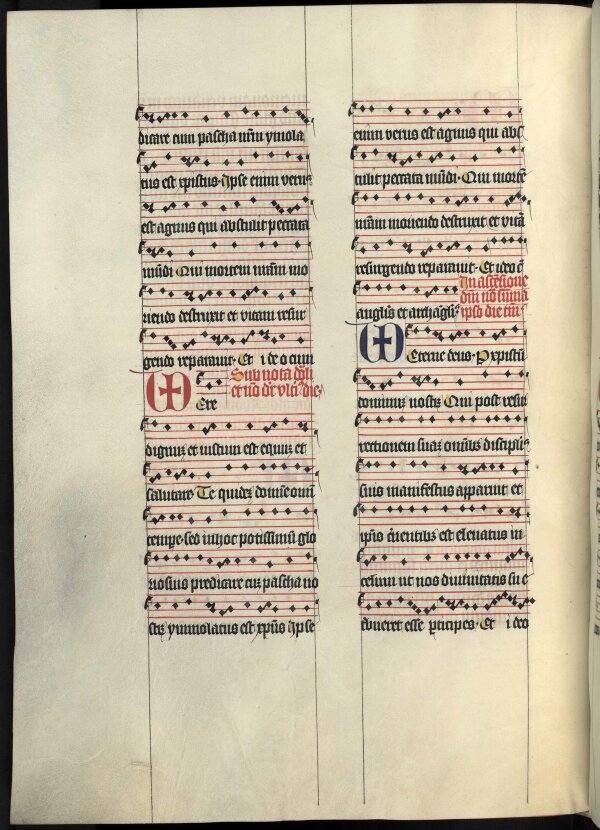 dicare cum pascha nr̄m ymola
tus est xpistus· Ipse enim verus
est agnus qui abstulit peccata
mūdi Qui mortem nr̄am mo
riendo destruxit et vitam resur
gendo reparauit· Et ideo cum
Sub nota
Ere
dignum et iustum est equum et
salutare Te quidem domine omni
tempe· sed in hoc potissimū glo
riosius predicare cum pascha no
strum ymmolatus est xpūs Ipse
enim verus est agnus qui abs
tulit peccata mūdi· Qui mortē
nr̄am moriendo destruxit et vitā
resurgendo reparauit· Et ideo c̄
angelis et archāgelis
In ascēsione
dn̄i
ipso die tm̄
Eterne deus· P xpistū
dominum nostrum Qui post resur
rectionem suam omībus discipulis
suis manifestus apparuit et
ip̄is cernentibus est eleuatus in
celum ut nos diuinitatis su e
tribueret esse participes· Et ideo